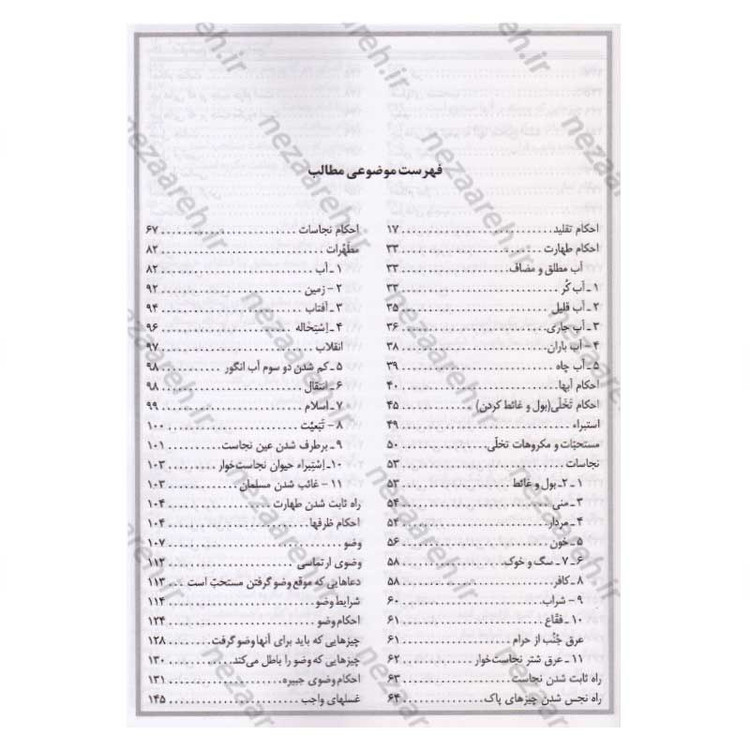 فهرست موضوعی مطالب
احکام تقلید ........ ۱۷
احکام طهارت ........ ۳۳
آب مطلق و مضاف ........ ۳۳
۱ ـ آب کُر ........ ۳۳
۲ ـ آب قلیل ........ ۳۵
۳ ـ آب جاری ........ ۳۶
۴ - آب باران ........ ۳۸
۵ ـ آب چاه ........ ۳۹
احکام آبها ........ ۴۰
احکام تَخَلّی(بول و غائط کردن) ........ ۴۵
استبراء ........ ۴۹
مستحبّات و مکروهات تخلّی ........ ۵۰
نجاسات ........ ۵۳
۱ ـ ۲ـ بول و غائط ........ ۵۳
۳ ـ منی ........ ۵۴
۴ ـ مردار ........ ۵۴
۵ ـ خون ........ ۵۶
۶ ـ ۷ ـ سگ و خوک ........ ۵۸
۸ ـ کافر ........ ۵۸
۹ - شراب ........ ۶۰
۱۰ ـ فقّاع ........ ۶۱
عرق جُنُب از حرام ........ ۶۱
۱۱ ـ عرق شتر نجاست‌خوار ........ ۶۲
راه ثابت شدن نجاست ........ ۶۳
راه نجس شدن چیزهای پاک ........ ۶۴
احکام نجاسات ........ ۶۷
مطهّرات ........ ۸۲
۱ ـ آب ........ ۸۲
۲ - زمین ........ ۹۲
۳ ـ آفتاب ........ ۹۴
۴ ـ اِستِحاله ........ ۹۶
انقلاب ........ ۹۷
۵ ـ کم شدن دو سوم آب انگور ........ ۹۸
۶ ـ انتقال ........ ۹۸
۷ ـ اسلام ........ ۹۹
۸ - تَبَعیّت ........ ۱۰۰
۹ ـ برطرف شدن عین نجاست ........ ۱۰۱
۱۰ـ اِستِبراء حیوان نجاست‌خوار ........ ۱۰۳
۱۱ - غائب شدن مسلمان ........ ۱۰۳
راه ثابت شدن طهارت ........ ۱۰۴
احکام ظرفها ........ ۱۰۴
وضو ........ ۱۰۷
وضوی ارتماسی ........ ۱۱۲
دعاهایی که موقع وضو گرفتن مستحبّ است ... ۱۱۳
شرایط وضو ........ ۱۱۴
احکام وضو ........ ۱۲۴
چیزهایی که باید برای آنها وضو گرفت ........ ۱۲۸
چیزهایی که وضو را باطل می‌کند ........ ۱۳۰
احکام وضوی جبیره ........ ۱۳۱
غسلهای واجب ........ ۱۴۵
nezaareh.ir